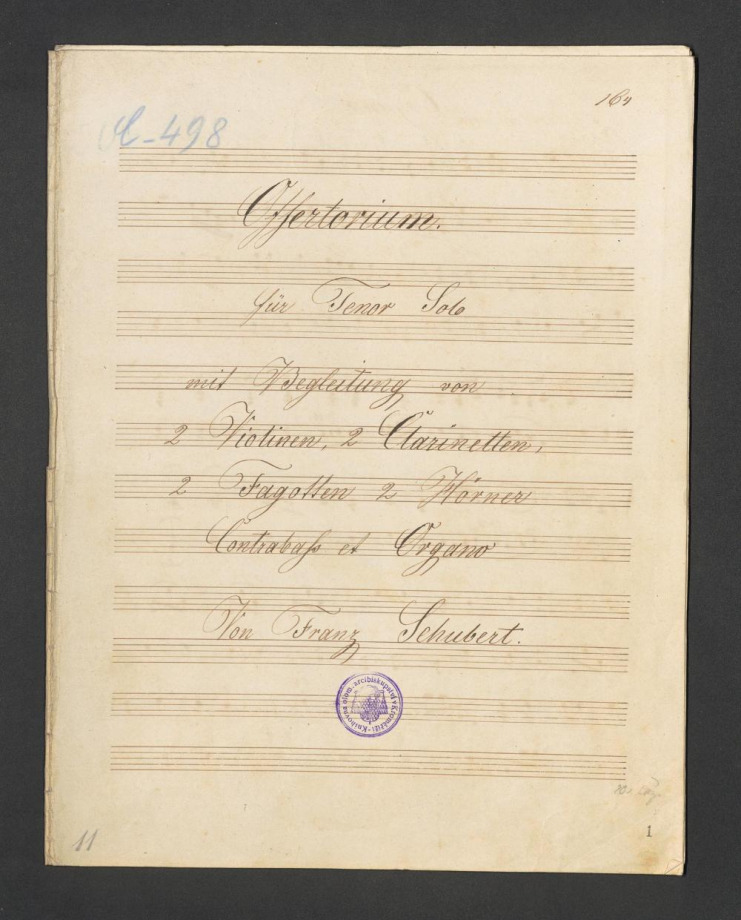 164
A-498
Offertorium.
für Tenor Solo
mit Begleitung von
2 Violinen, 2 Clarinetten,
2 Fagotten 2 Hörner
Contrabaß et Organo
Von Franz Schubert.
Knihovna olom. arcibiskupství v Kroměříži
11
1